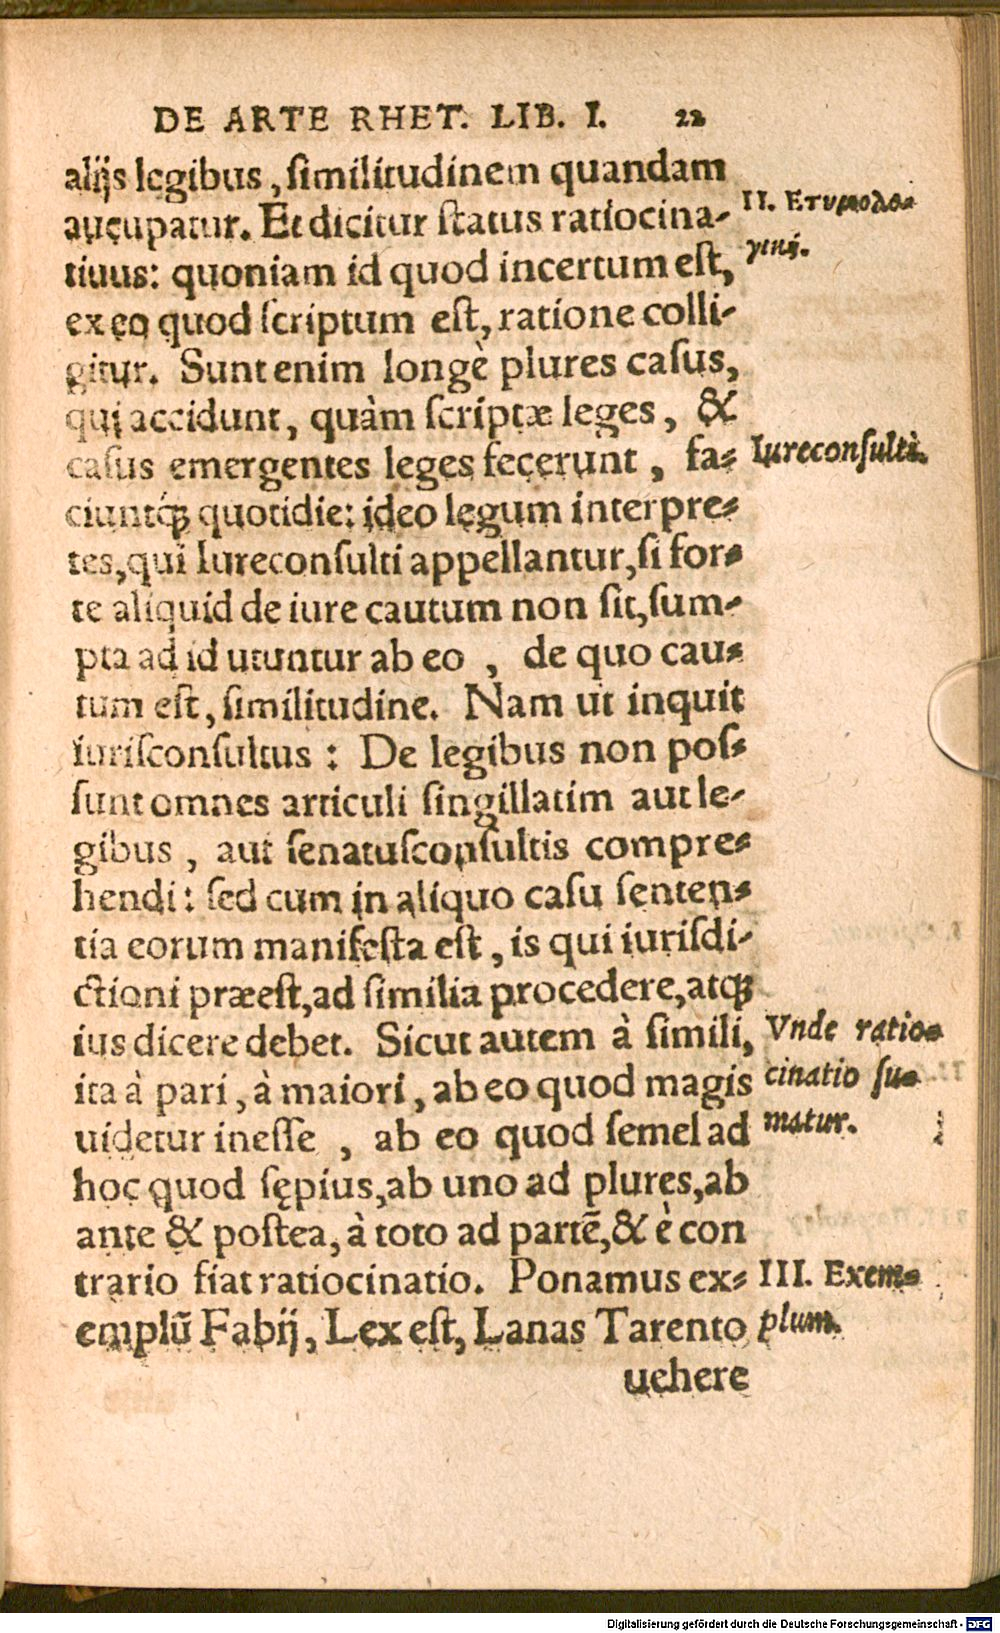 DE ARTE RHET. LIB. I. 22
alijs legibus, ſimilitudinem quandam
aucupatur. Et dicitur ſtatus ratiocina-
II. Ετυμολο-
γικῶς.
tiuus: quoniam id quod incertum eſt,
ex eo quod ſcriptum eſt, ratione colli-
gitur. Sunt enim longè plures caſus,
qui accidunt, quàm ſcriptæ leges, &
caſus emergentes leges fecerunt, fa-
Iureconſulti.
ciuntq́ꝫ quotidie: ideo legum interpre-
tes, qui Iureconſulti appellantur, ſi for-
te aliquid de iure cautum non ſit, ſum-
pta ad id utuntur ab eo, de quo cau-
tum eſt, ſimilitudine. Nam ut inquit
iuriſconſultus: De legibus non poſ-
ſunt omnes articuli ſingillatim aut le-
gibus, aut ſenatuſconſultis compre-
hendi: ſed cum in aliquo caſu ſenten-
tia eorum manifeſta eſt, is qui iuriſdi-
ctioni præeſt, ad ſimilia procedere, atqꝫ
ius dicere debet. Sicut autem à ſimili,
Vnde ratio-
cinatio ſu-
matur.
ita à pari, à maiori, ab eo quod magis
uidetur ineſſe, ab eo quod ſemel ad
hoc quod ſępius, ab uno ad plures, ab
ante & poſtea, à toto ad partē, & è con
trario fiat ratiocinatio. Ponamus ex-
III. Exem-
plum.
emplū Fabij, Lex eſt, Lanas Tarento
uehere
Digitalisierung gefördert durch die Deutsche Forschungsgemeinschaft - DFG